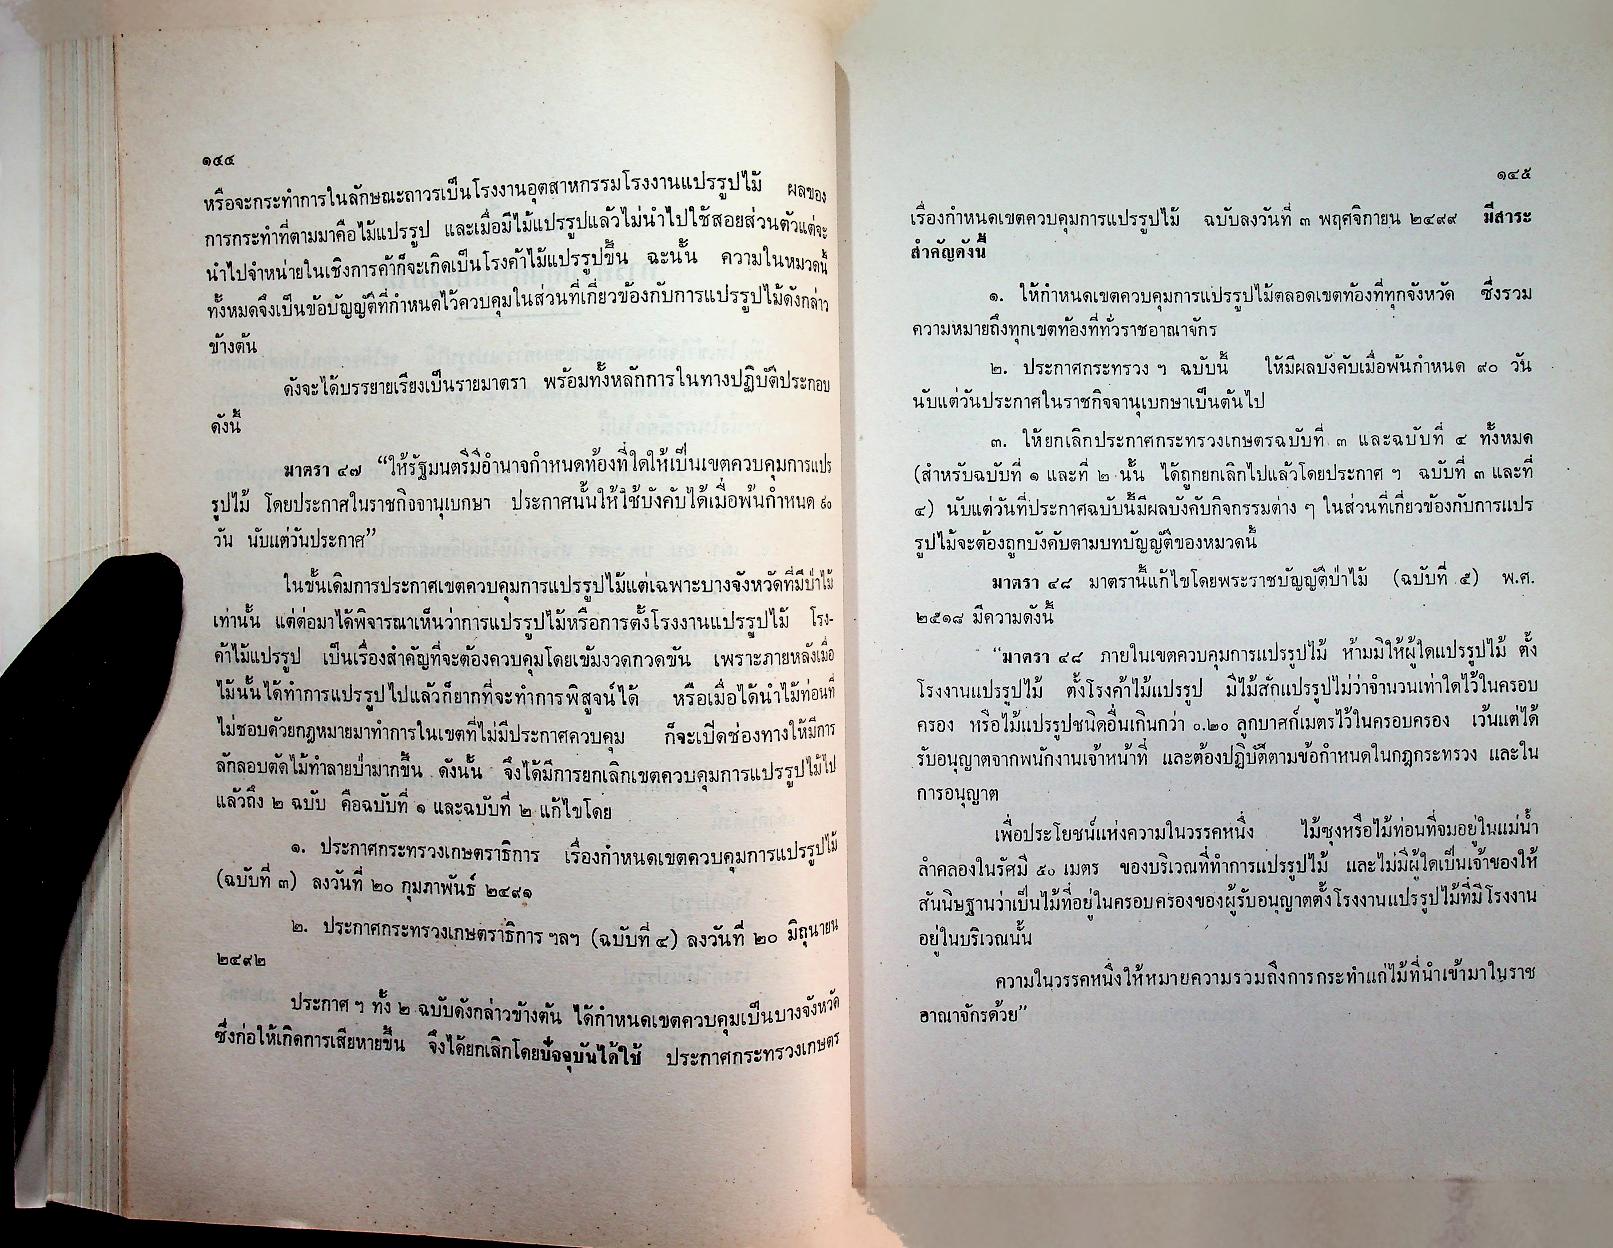 ๑๔๔
หรือจะกระทำการในลักษณะถาวรเป็นโรงงานอุตสาหกรรมโรงงานแปรรูปไม้ ผลของ
การกระทำที่ตามมาคือไม้แปรรูป และเมื่อมีไม้แปรรูปแล้วไม่นำไปใช้สอยส่วนตัวแต่จะ
นำไปจำหน่ายในเชิงการค้าก็จะเกิดเป็นโรงค้าไม้แปรรูปขึ้น ฉะนั้น ความในหมวดนี้
ทั้งหมดจึงเป็นข้อบัญญัติที่กำหนดไว้ควบคุมในส่วนที่เกี่ยวข้องกับการแปรรูปไม้ดังกล่าว
ข้างต้น
ดังจะได้บรรยายเรียงเป็นรายมาตรา พร้อมทั้งหลักการในทางปฏิบัติประกอบ
ดังนี้
มาตรา ๔๗ “ให้รัฐมนตรีมีอำนาจกำหนดท้องที่ใดให้เป็นเขตควบคุมการแปร
รูปไม้ โดยประกาศในราชกิจจานุเบกษา ประกาศนั้นให้ใช้บังคับได้เมื่อพ้นกำหนด ๙๐
วัน นับแต่วันประกาศ”
ในชั้นเดิมการประกาศเขตควบคุมการแปรรูปไม้แต่เฉพาะบางจังหวัดที่มีป่าไม้
เท่านั้น แต่ต่อมาได้พิจารณาเห็นว่าการแปรรูปไม้หรือการตั้งโรงงานแปรรูปไม้ โรง-
ค้าไม้แปรรูป เป็นเรื่องสำคัญที่จะต้องควบคุมโดยเข้มงวดกวดขัน เพราะภายหลังเมื่อ
ไม้นั้นได้ทำการแปรรูปไปแล้วก็ยากที่จะทำการพิสูจน์ได้ หรือเมื่อได้นำไม้ท่อนที่
ไม่ชอบด้วยกฎหมายมาทำการในเขตที่ไม่มีประกาศควบคุม ก็จะเปิดช่องทางให้มีการ
ลักลอบตัดไม้ทำลายป่ามากขึ้น ดังนั้น จึงได้มีการยกเลิกเขตควบคุมการแปรรูปไม้ไป
แล้วถึง ๒ ฉบับ คือฉบับที่ ๑ และฉบับที่ ๒ แก้ไขโดย
๑. ประกาศกระทรวงเกษตราธิการ เรื่องกำหนดเขตควบคุมการแปรรูปไม้
(ฉบับที่ ๓) ลงวันที่ ๒๐ กุมภาพันธ์ ๒๔๙๑
๒. ประกาศกระทรวงเกษตราธิการ ฯลฯ (ฉบับที่ ๔) ลงวันที่ ๒๐ มิถุนายน
๒๔๙๒
ประกาศ ฯ ทั้ง ๒ ฉบับดังกล่าวข้างต้น ได้กำหนดเขตควบคุมเป็นบางจังหวัด
ซึ่งก่อให้เกิดการเสียหายขึ้น จึงได้ยกเลิกโดยปัจจุบันได้ใช้ ประกาศกระทรวงเกษตร
๑๔๕
เรื่องกำหนดเขตควบคุมการแปรรูปไม้ ฉบับลงวันที่ ๓ พฤศจิกายน ๒๔๙๙ มีสาระ
สำคัญดังนี้
๑. ให้กำหนดเขตควบคุมการแปรรูปไม้ตลอดเขตท้องที่ทุกจังหวัด ซึ่งรวม
ความหมายถึงทุกเขตท้องที่ทั่วราชอาณาจักร
๒. ประกาศกระทรวง ฯ ฉบับนี้ ให้มีผลบังคับเมื่อพ้นกำหนด ๙๐ วัน
นับแต่วันประกาศในราชกิจจานุเบกษาเป็นต้นไป
๓. ให้ยกเลิกประกาศกระทรวงเกษตรฉบับที่ ๓ และฉบับที่ ๔ ทั้งหมด
(สำหรับฉบับที่ ๑ และที่ ๒ นั้น ได้ถูกยกเลิกไปแล้วโดยประกาศ ฯ ฉบับที่ ๓ และที่
๔) นับแต่วันที่ประกาศฉบับนี้มีผลบังคับกิจกรรมต่าง ๆ ในส่วนที่เกี่ยวข้องกับการแปร
รูปไม้จะต้องถูกบังคับตามบทบัญญัติของหมวดนี้
มาตรา ๔๘ มาตรานี้แก้ไขโดยพระราชบัญญัติป่าไม้ (ฉบับที่ ๕) พ.ศ.
๒๕๑๘ มีความดังนี้
“มาตรา ๔๘ ภายในเขตควบคุมการแปรรูปไม้ ห้ามมิให้ผู้ใดแปรรูปไม้ ตั้ง
โรงงานแปรรูปไม้ ตั้งโรงค้าไม้แปรรูป มีไม้สักแปรรูปไม่ว่าจำนวนเท่าใดไว้ในครอบ
ครอง หรือไม้แปรรูปชนิดอื่นเกินกว่า ๐.๒๐ ลูกบาศก์เมตรไว้ในครอบครอง เว้นแต่ได้
รับอนุญาตจากพนักงานเจ้าหน้าที่ และต้องปฏิบัติตามข้อกำหนดในกฎกระทรวง และใน
การอนุญาต
เพื่อประโยชน์แห่งความในวรรคหนึ่ง ไม้ซุงหรือไม้ท่อนที่จมอยู่ในแม่น้ำ
ลำคลองในรัศมี ๕๐ เมตร ของบริเวณที่ทำการแปรรูปไม้ และไม่มีผู้ใดเป็นเจ้าของให้
สันนิษฐานว่าเป็นไม้ที่อยู่ในครอบครองของผู้รับอนุญาตตั้งโรงงานแปรรูปไม้ที่มีโรงงาน
อยู่ในบริเวณนั้น
ความในวรรคหนึ่งให้หมายความรวมถึงการกระทำแก่ไม้ที่นำเข้ามาในราช
อาณาจักรด้วย”